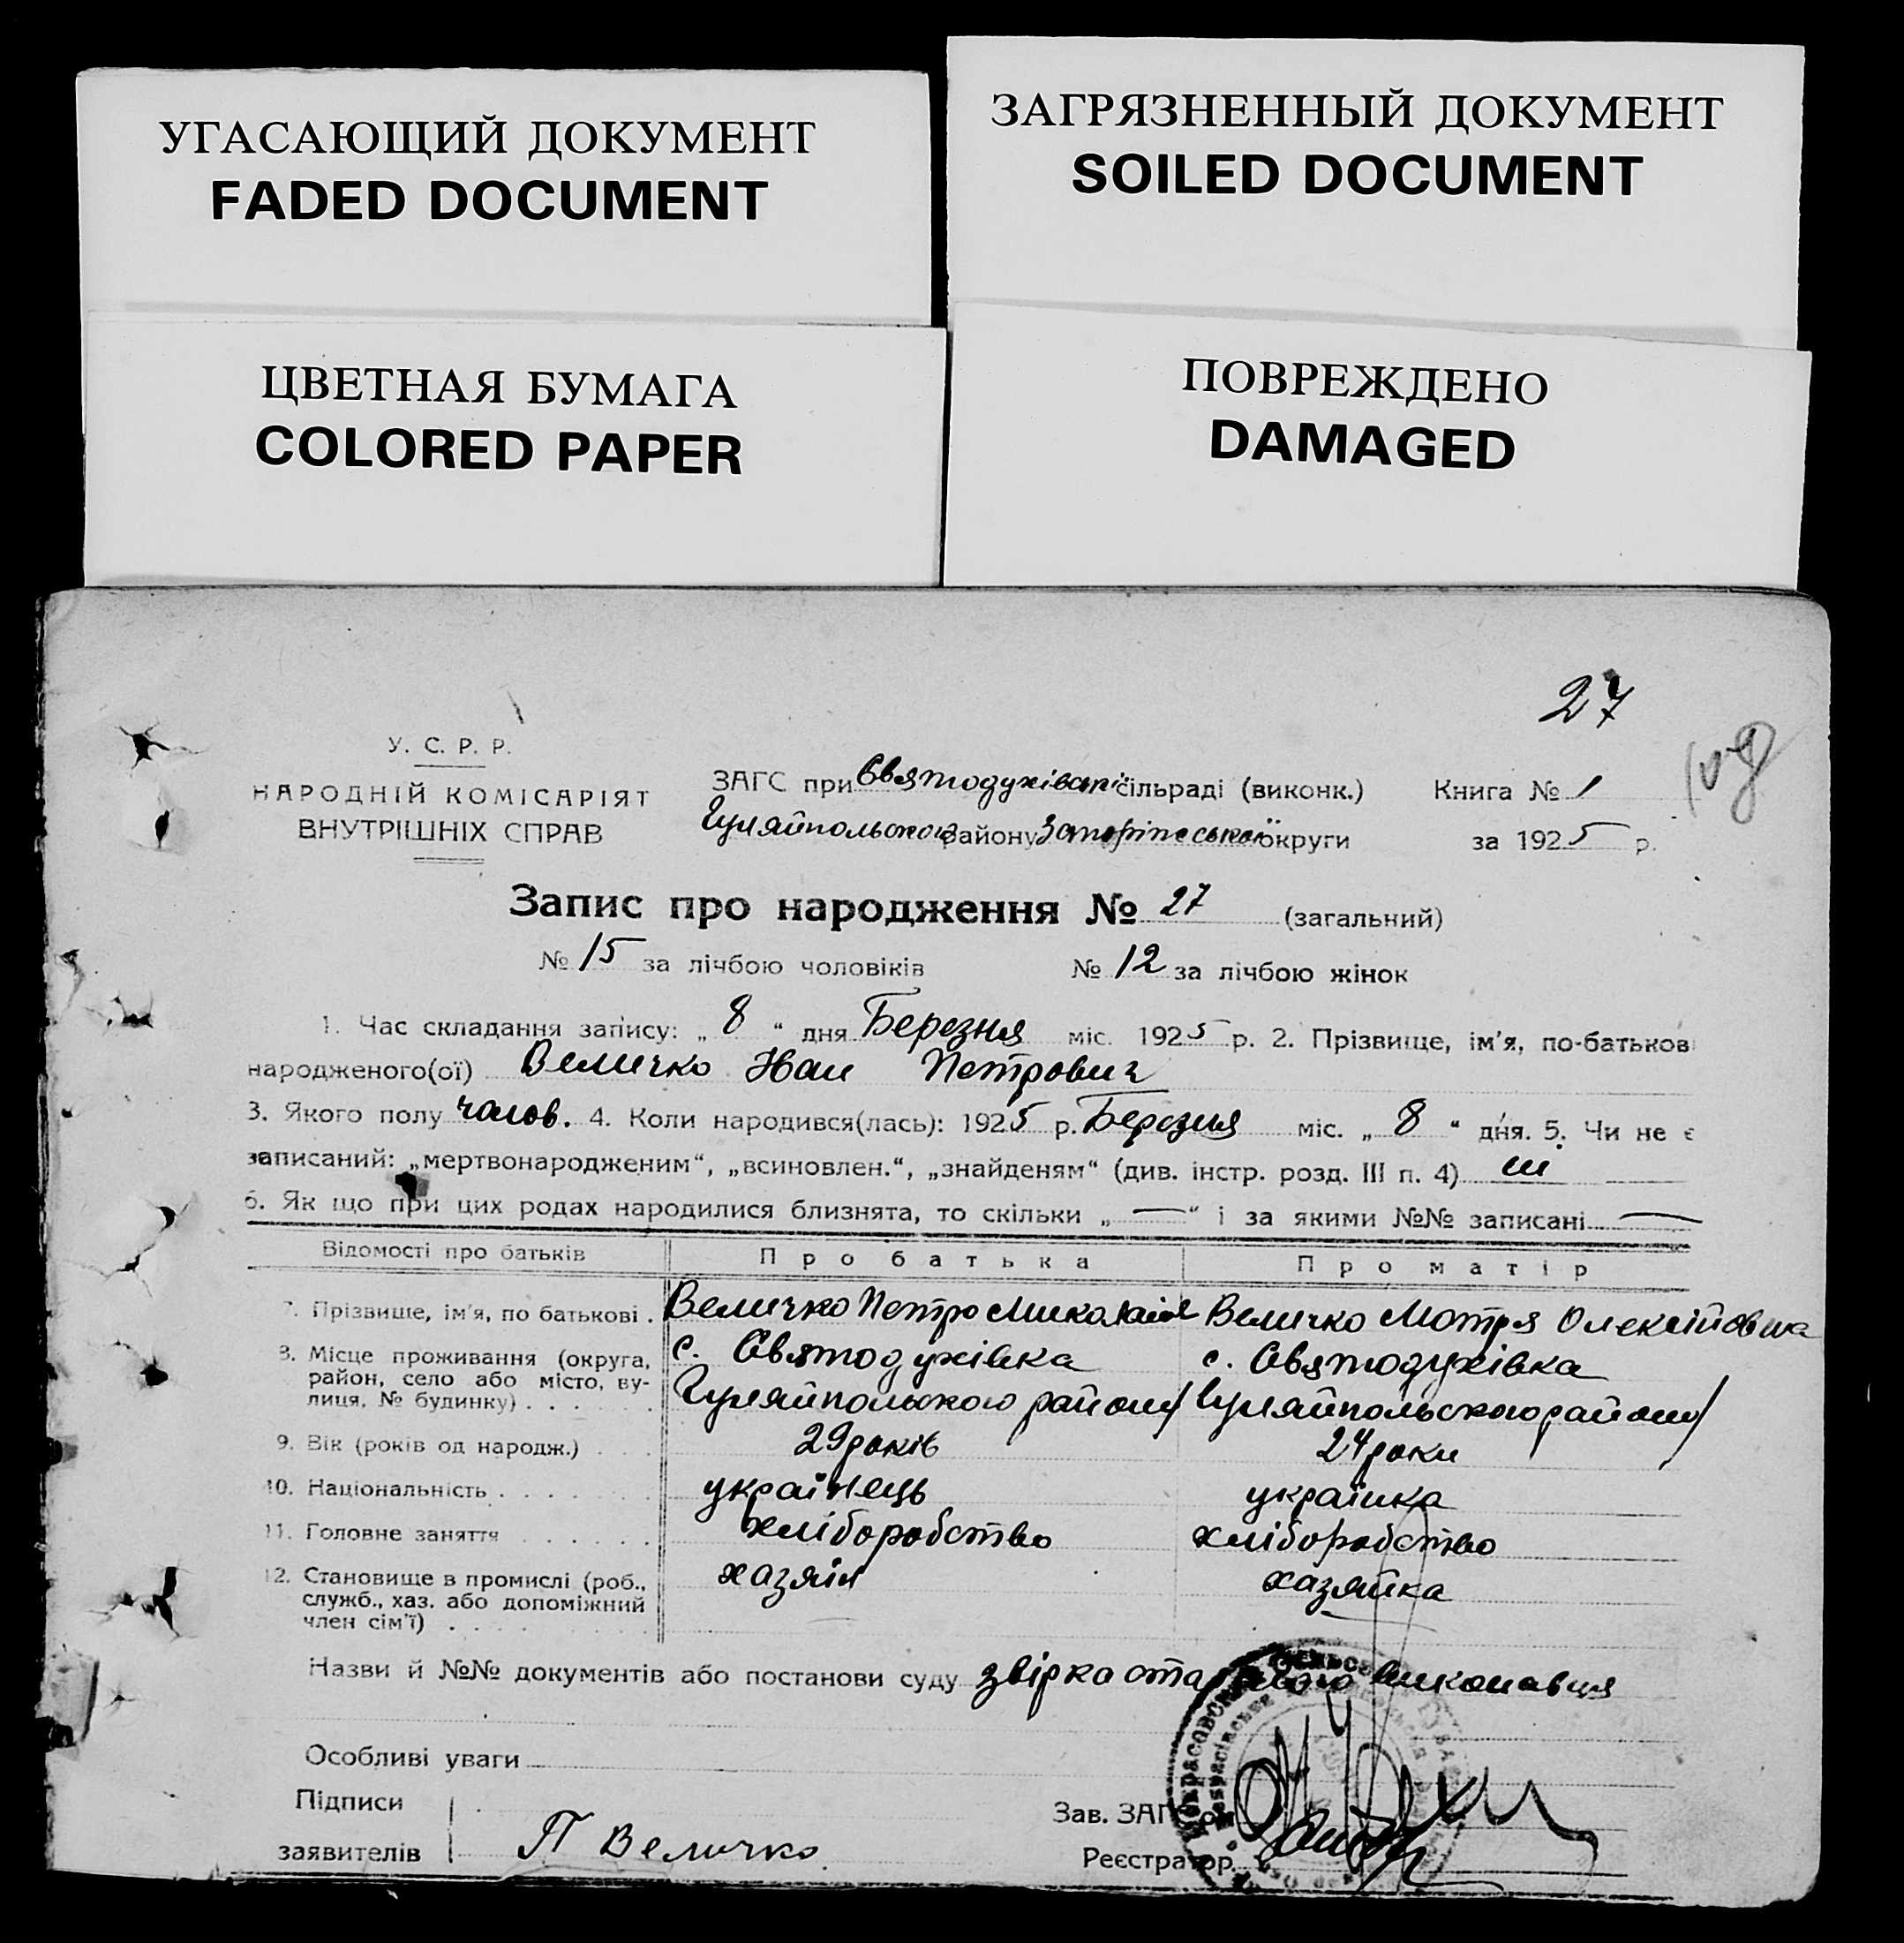 УГАСАЮЩИЙ ДОКУМЕНТ
FADED DOCUMENT
ЗАГРЯЗНЕННЫЙ ДОКУМЕНТ
SOILED DOCUMENT
ЦВЕТНАЯ БУМАГА
COLORED PAPER
ПОВРЕЖДЕНО
DAMAGED
27
У. С. Р. Р.
НАРОДНІЙ КОМІСАРІЯТ
ВНУТРІШНІХ СПРАВ
ЗАГС при Святодухівській сільраді (виконк.)
Гуляйпольского району Запоріжської округи
Книга № 1
за 1925 р.
Запис про народження № 27 (загальний)
№ 15 за лічбою чоловіків № 12 за лічбою жінок
1. Час складання запису: „ 8 “ дня Березня міс. 1925 р. 2. Прізвище, ім'я, по-батьков
народженого(ої) Величко Иван Петрович
3. Якого полу чолов. 4. Коли народився(лась): 1925 р. Березня міс. „ 8 “ дня. 5. Чи не є
записаний: „мертвонародженим“, „всиновлен.“, „знайденям“ (див. інстр. розд. III п. 4) ні
6. Як що при цих родах народилися близнята, то скільки „ — “ і за якими №№ записані —
Відомості про батьків Про батька Про матір
7. Прізвище, ім'я, по батькові . Величко Петро Миколаїв Величко Мотря Олексіївна
8. Місце проживання (округа, район, село або місто, вулиця, № будинку) . . . . . .
с. Святодухівка
Гуляйпольского району
с. Святодухівка
Гуляйпольского району
9. Вік (років од народж.) . . . 29 років 24 роки
10. Національність . . . . . . українець українка
11. Головне заняття . . . . . . хліборобство хліборобство
12. Становище в промислі (роб., служб., хаз. або допоміжний член сім'ї) . . . . хазяїн хазяйка
Назви й №№ документів або постанови суду звірка виконавця
Особливі уваги
Підписи
заявителів П Величко
Зав. ЗАГС'ом
Реєстратор